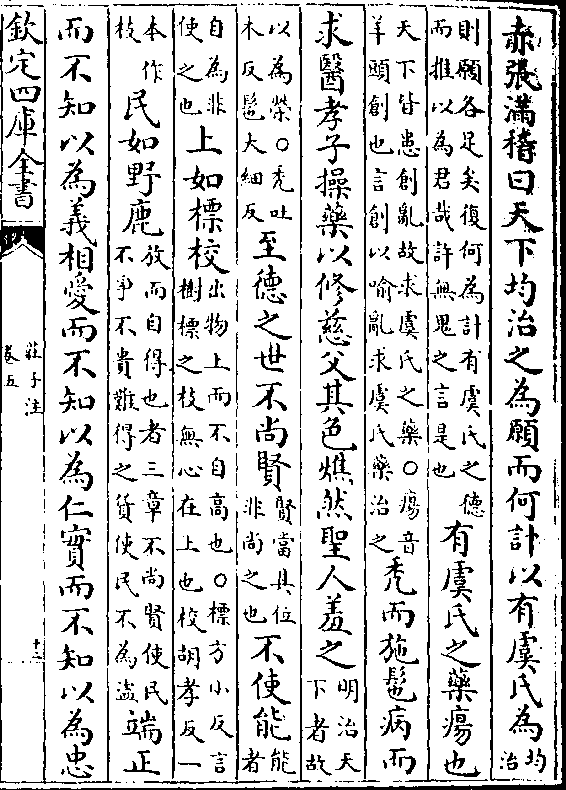 赤張滿稽曰天下均治之為願而何計以有虞氏為均治
則願各足矣復何為計有虞氏之德而推以為君哉許無鬼之言是也有虞氏之藥瘍也
天下皆患創亂故求虞氏之藥○瘍音羊頭創也言創以喻亂求虞氏藥治之秃而施髢病而
求醫孝子操藥以修慈父其色燋然聖人羞之明治天下者故
以為榮○秃吐木反髢大細反至德之世不尚賢賢當其位非尚之也不使能能者
自為非使之也上如標校出物上而不自高也○標方小反言樹標之枝無心在上也校胡孝反一
本作枝民如野鹿放而自得也者三章不尚賢使民不爭不貴難得之貨使民不為盜端正
而不知以為義相愛而不知以為仁實而不知以為忠
欽定四庫全書
莊子注
卷五